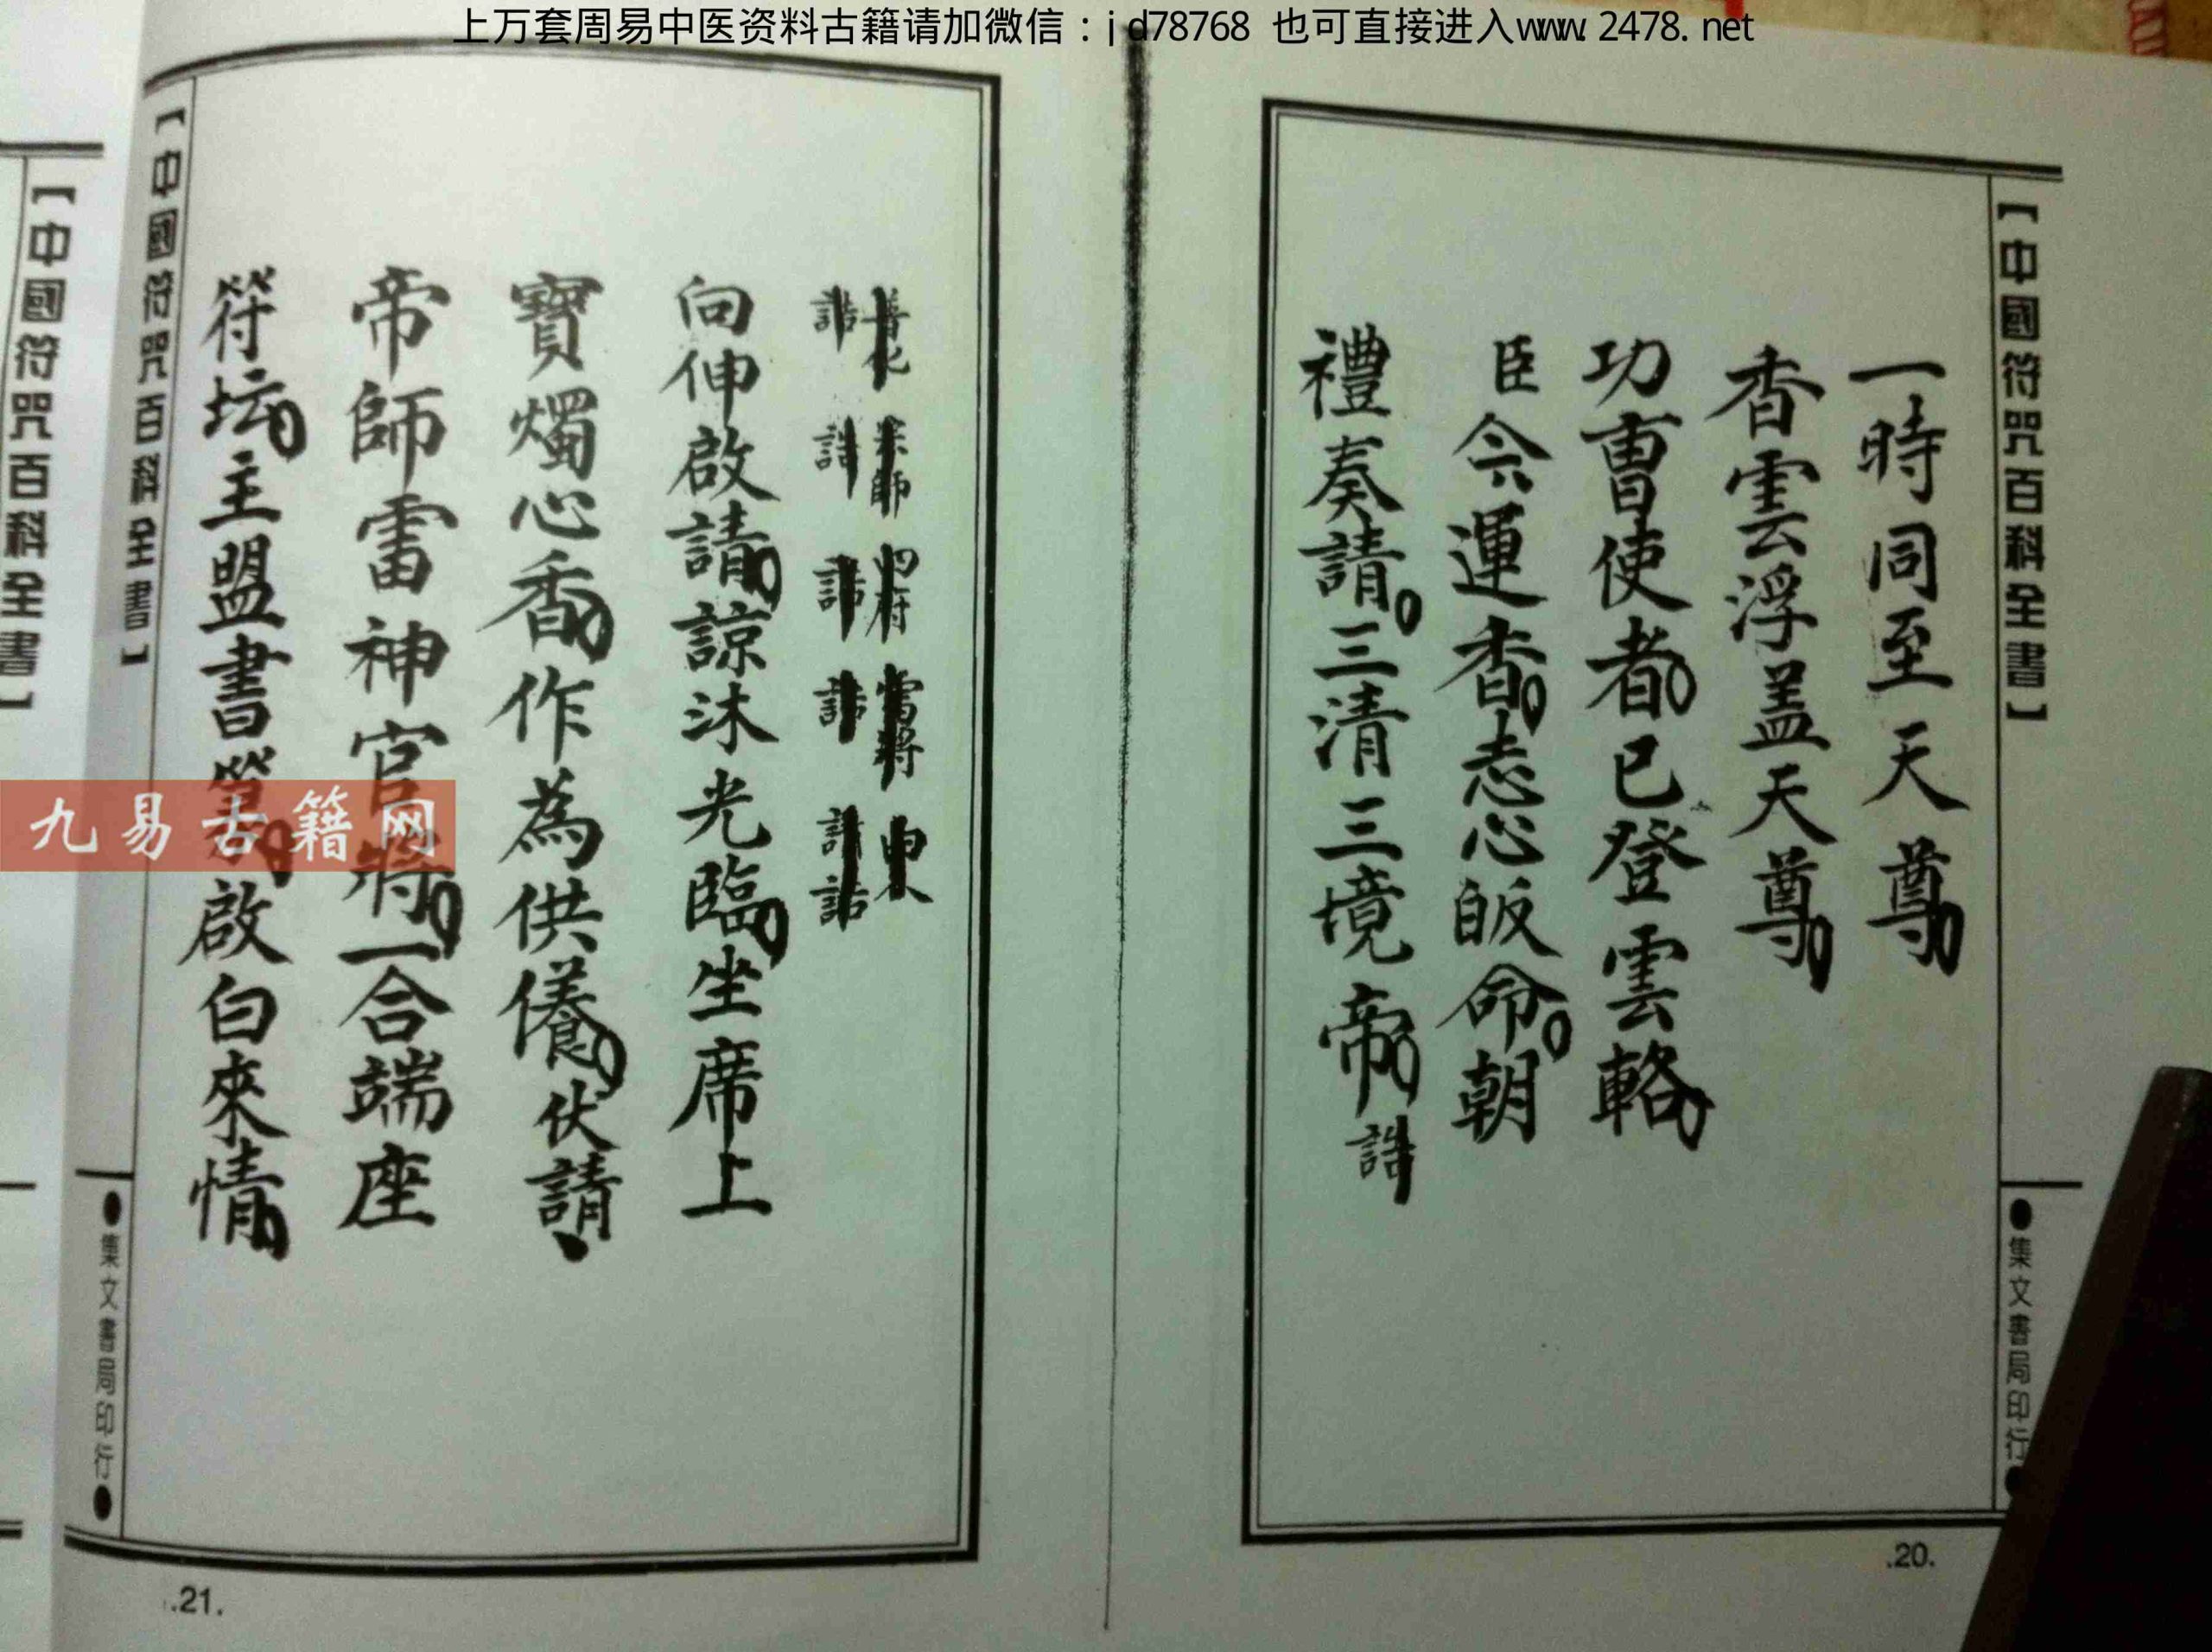 上万套周易中医资料古籍请加微信：jd78768 也可直接进入www.2478.net
【中國符咒百科全書】
●集文書局印行
一時同至天尊
香雲浮盖天尊
功曹使者已登雲輅
臣 運香志心皈命朝
禮奏請三清三境帝 誥
.20.
普化 宗師 四府 雷將
誥 誥 誥 誥 請誥
向伸啟請諒沐光臨坐席上
寶燭心香作為供儀伏請
帝師雷神官將一合端座
符坛主盟書篆啟白來情
【中國符咒百科全書】
●集文書局印行●
.21.
【中國符咒百科全書】
九易古籍网